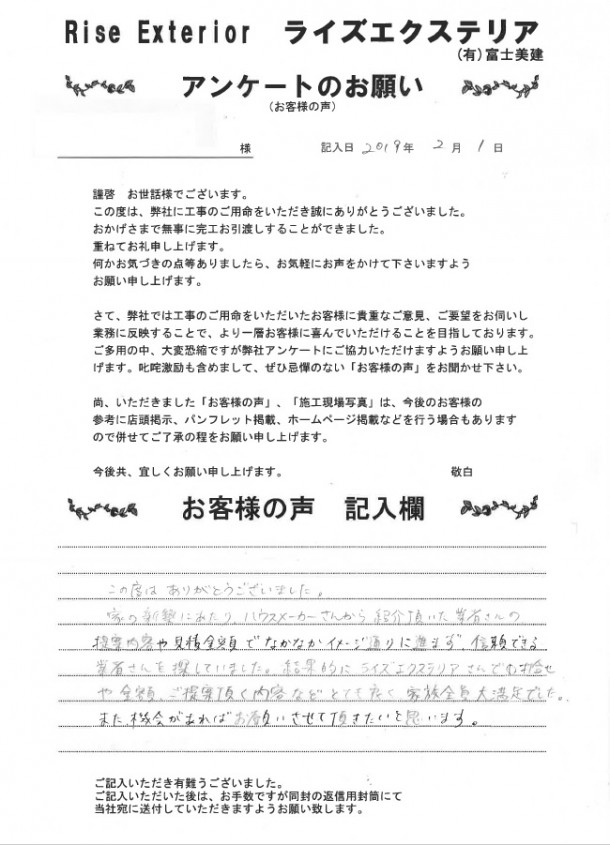 Rise Exterior ライズエクステリア
(有)富士美建
アンケートのお願い
(お客様の声)
様 記入日 2019年 2月 1日
謹啓 お世話様でございます。
この度は、弊社に工事のご用命をいただき誠にありがとうございました。
おかげさまで無事に完工お引渡しすることができました。
重ねてお礼申し上げます。
何かお気づきの点等ありましたら、お気軽にお声をかけて下さいますよう
お願い申し上げます。
さて、弊社では工事のご用命をいただいたお客様に貴重なご意見、ご要望をお伺いし
業務に反映することで、より一層お客様に喜んでいただけることを目指しております。
ご多用の中、大変恐縮ですが弊社アンケートにご協力いただけますようお願い申し上
げます。叱咤激励も含めまして、ぜひ忌憚のない「お客様の声」をお聞かせ下さい。
尚、いただきました「お客様の声」、「施工現場写真」は、今後のお客様の
参考に店頭掲示、パンフレット掲載、ホームページ掲載などを行う場合もあります
ので併せてご了承の程をお願い申し上げます。
今後共、宜しくお願い申し上げます。 敬白
お客様の声 記入欄
この度は ありがとうございました。
家の新築にあたり、ハウスメーカーさんから紹介頂いた業者さんの
提案内容や見積金額でなかなかイメージ通りに進まず、信頼できる
業者さんを探していました。結果的にライズエクステリアさんで打合せ
や金額、ご提案頂く内容などとても良く、家族全員大満足でした。
また機会があればお願いさせて頂きたいと思います。
ご記入いただき有難うございました。
ご記入いただいた後は、お手数ですが同封の返信用封筒にて
当社宛に送付していただきますようお願い致します。